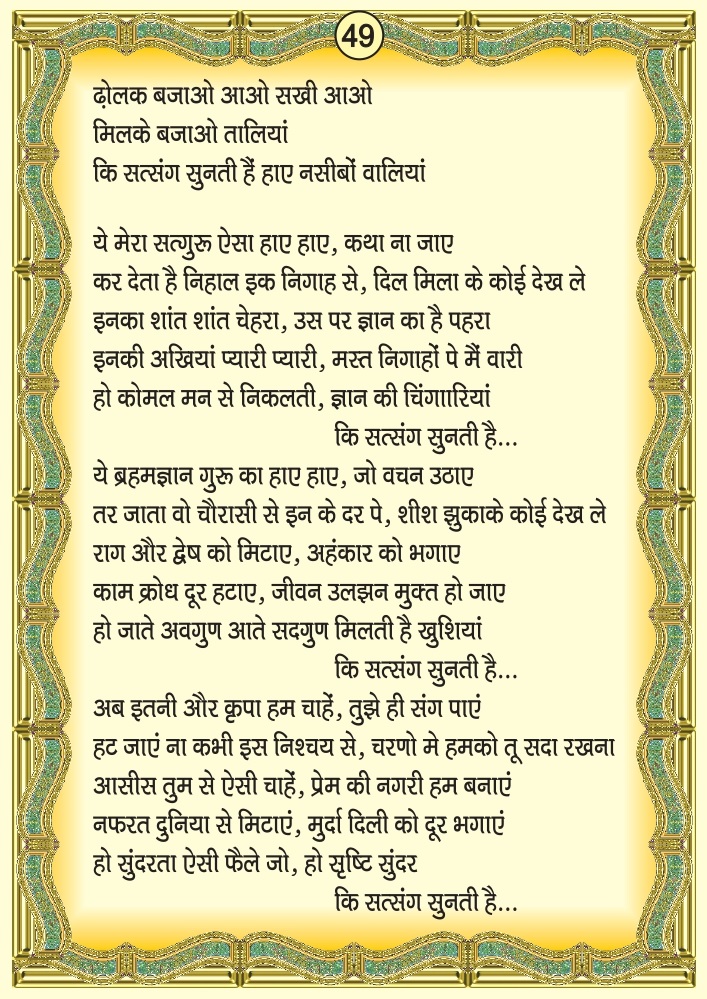 49
ढ़ोलक बजाओ आओ सखी आओ
मिलके बजाओ तालियां
कि सत्संग सुनती हैं हाए नसीबों वालियां
ये मेरा सत्गुरू ऐसा हाए हाए, कथा ना जाए
कर देता है निहाल इक निगाह से, दिल मिला के कोई देख ले
इनका शांत शांत चेहरा, उस पर ज्ञान का है पहरा
इनकी अखियां प्यारी प्यारी, मस्त निगाहों पे मैं वारी
हो कोमल मन से निकलती, ज्ञान की चिंगाारियां
कि सत्संग सुनती है...
ये ब्रहमज्ञान गुरू का हाए हाए, जो वचन उठाए
तर जाता वो चौरासी से इन के दर पे, शीश झुकाके कोई देख ले
राग और द्वेष को मिटाए, अहंकार को भगाए
काम क्रोध दूर हटाए, जीवन उलझन मुक्त हो जाए
हो जाते अवगुण आते सदगुण मिलती है खुशियां
कि सत्संग सुनती है...
अब इतनी और कृपा हम चाहें, तुझे ही संग पाएं
हट जाएं ना कभी इस निश्चय से, चरणो मे हमको तू सदा रखना
आसीस तुम से ऐसी चाहें, प्रेम की नगरी हम बनाएं
नफरत दुनिया से मिटाएं, मुर्दा दिली को दूर भगाएं
हो सुंदरता ऐसी फैले जो, हो सृष्टि सुंदर
कि सत्संग सुनती है...